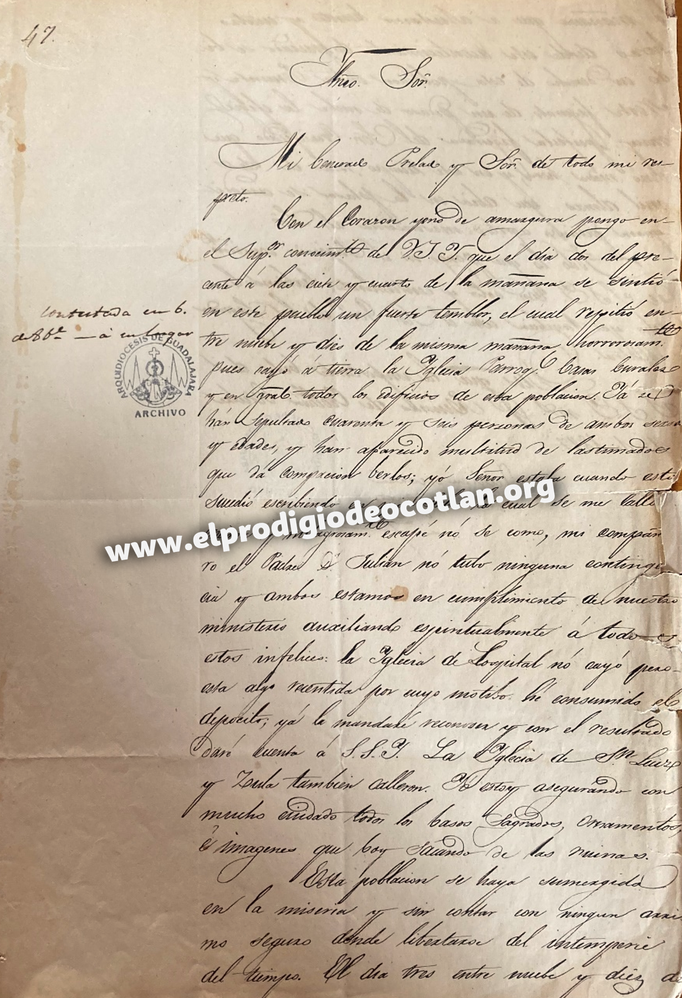 47.
Yllmo. Sor.
Mi General Prelado y Sor. de todo mi res-
peto.
Con el Corazon yeno de amargura pongo en
el Supor. conocimto. de V.S.Y. que el dia dos del pre-
sente á las ciete y cuarto de la mañana se sintió
en este pueblo un fuerte temblor, el cual repitió en-
tre nuebe y dies de la misma mañana, horrorosamte.
pues cayó a tierra la Yglecia Parroql. Casas Curales
y en gral. todos los edificios de esta poblacion. Yá se
hán sepultado cuarenta y seis personas de ambos secsos
y edades, y han aparecido multitud de lastimados
que dá compacion berlos; yó Señor estaba cuando esto
sucedió escribiendo la cual se me calló
escapé nó se como, mi compañe
ro el Padre Dn. Julian nó tubo ninguna contengen
cia y ambos estamos en cumplimiento de nuestro
ministerio auxiliando espiritualmente á todos
estos infelices: la Yglecia de Hospital nó cayó pero
esta algo recentida por cuyo motibo hé consumido el
deposito; yá la mandaré reconoser y con el resultado
daré cuenta á S.S.Y. La Yglecia de Sta. Lucia
y Zula tambien calleron. Yo estoy asegurando con
mucho cuidado todos los basos Sagrados, Ornamentos,
é imagenes que boy sacando de las ruinas.
Esta poblacion se haya sumergida
en la miseria y sin contar con ningun arri
mo seguro donde libertarse del intemperie
del tiempo. El dia tres entre nuebe y diez d
contestada en 6.
de 8bre.
ARQUIDIOCESIS DE GUADALAJARA
ARCHIVO
www.elprodigiodeocotlan.org